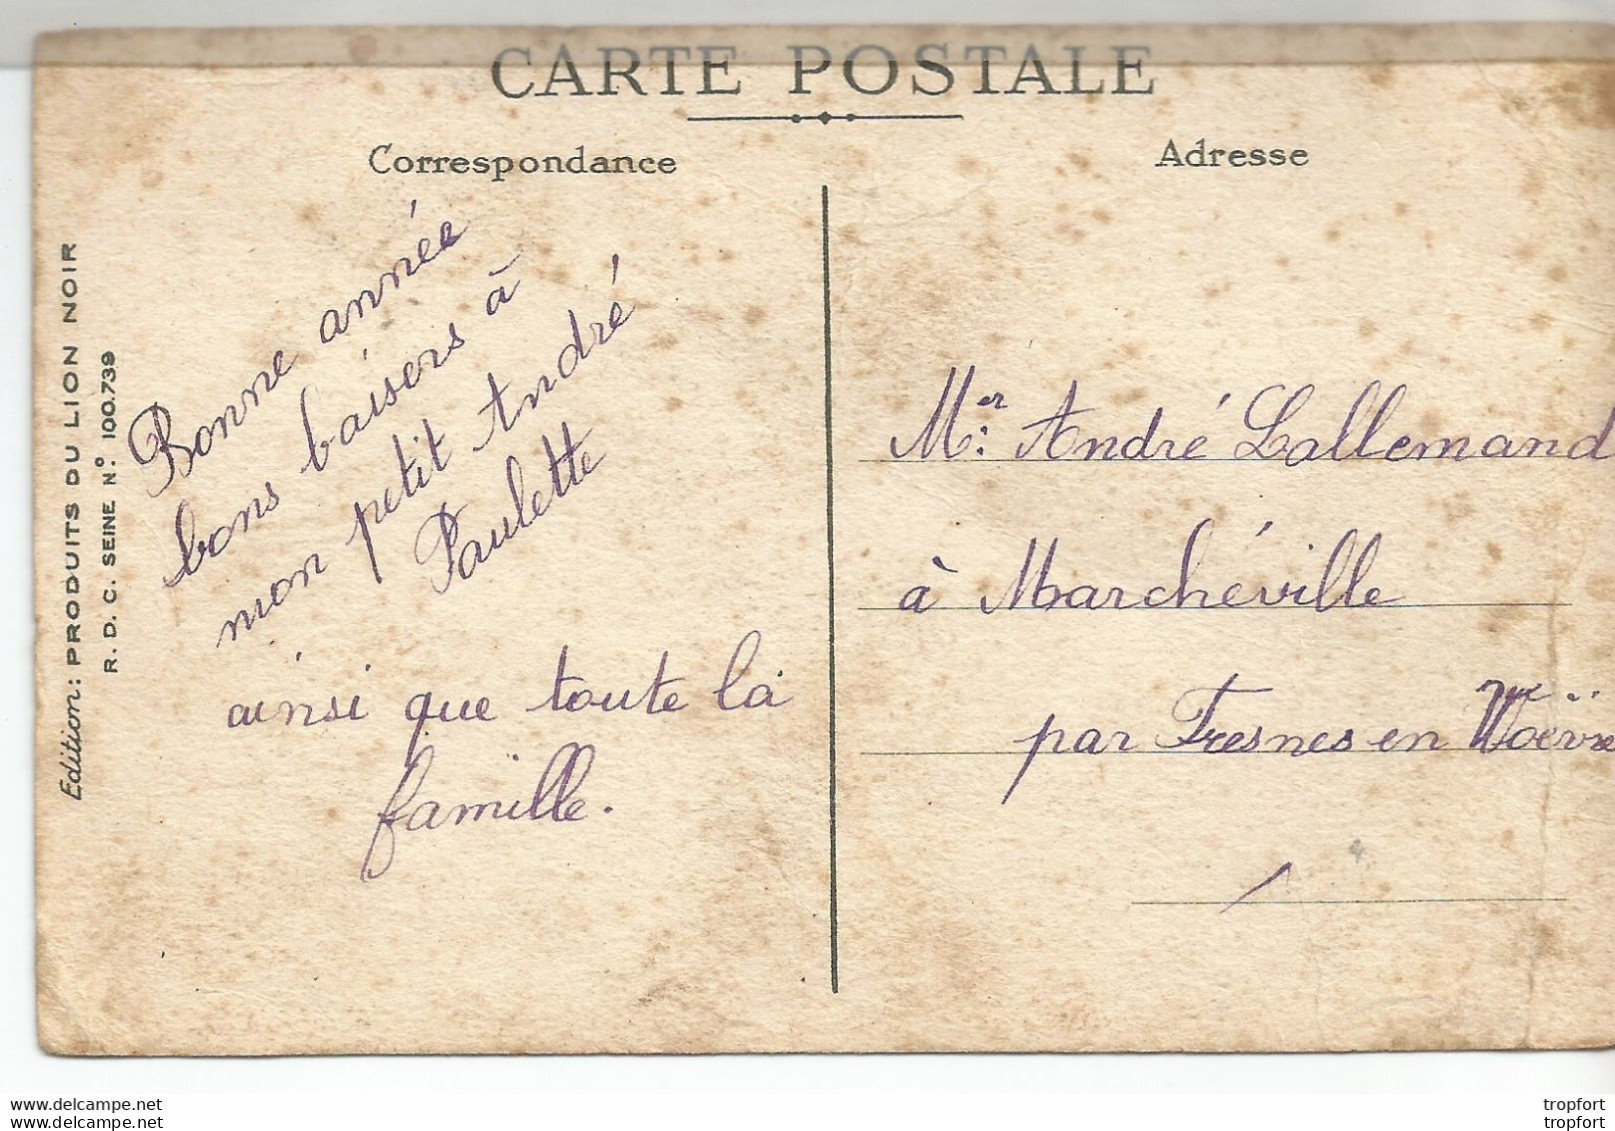 CARTE POSTALE
Correspondance
Adresse
Edition: PRODUITS DU LION NOIR
R. D. C. SEINE N.° 100.739
Bonne année
bons baisers à
mon petit André
Paulette
ainsi que toute la
famille.
Mr André Lallemand
à Marchéville
par Fresnes en Woëvre
www.delcampe.net
www.delcampe.net
tropfort
tropfort